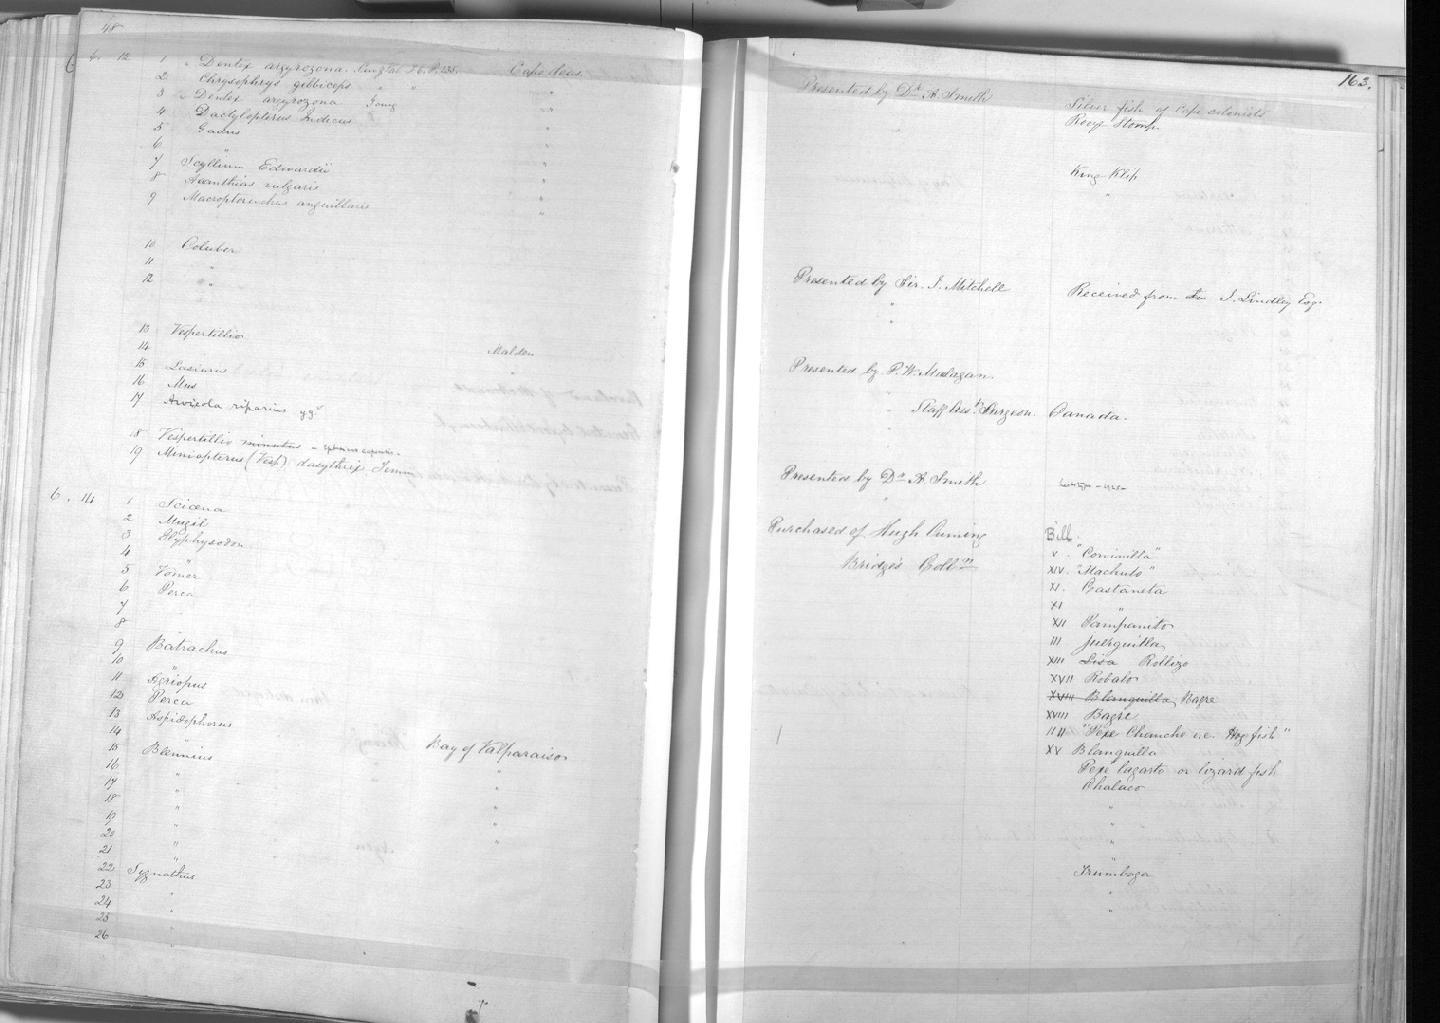 48
6. 12 1 Dentex argyrozona. Cape Seas.
2 Chrysophrys gibbiceps " "
3 Dentex argyrozona "
4 Dactylopterus Indicus "
5 Gadus
6 " "
7 Scyllium Edwardii "
8 Acanthias vulgaris "
9 Macropteruchus anguillaris "
10 Coluber
11 "
12 "
13 Vespertilio
14 Malden
15 Lasiurus
16 Mus
17 Arvicola riparius
18 Vespertilio minutus
19 Miniopterus (Vesp) dasythrix Temm
6. 14 1 Sciæna
2 Mugil
3 Glyphysodon
4 "
5 Vomer
6 Perca
7
8
9 Batrachus
10 "
11 Agriopus
12 Perca
13 Aspidophorus
14 "
15 Blennius Bay of Valparaiso
16 " "
17 " "
18 " "
19 " "
20 " "
21 "
22 Sygnathus
23 "
24 "
25
26 "
163.
Presented by Dr. A. Smith Silver fish of Cape colonists
Stomp
King Klip
"
Presented by Sir. J. Mitchell Received from J. Lindley Esq.
"
"
Presented by P. W. Maclagan
"
" Staff Surgeon Canada.
Presented by Dr A. Smith
"
Purchased of Hugh Cuming Bill.
V. "Corvinilla"
Bridges's Colln XIV. "Machuto"
XI. Castaneta
XI "
XII Pampanito
III Juerguilla
XIII Lisa Rollizo
XVII Robalo
XVIII Blanquilla Bagre
XVIII Bagre
"Peje Chanche i.e. Hog fish"
XV Blanquilla
Peje lagarto or lizard fish
Chalaco
"
"
"
Trumbaga
"
"